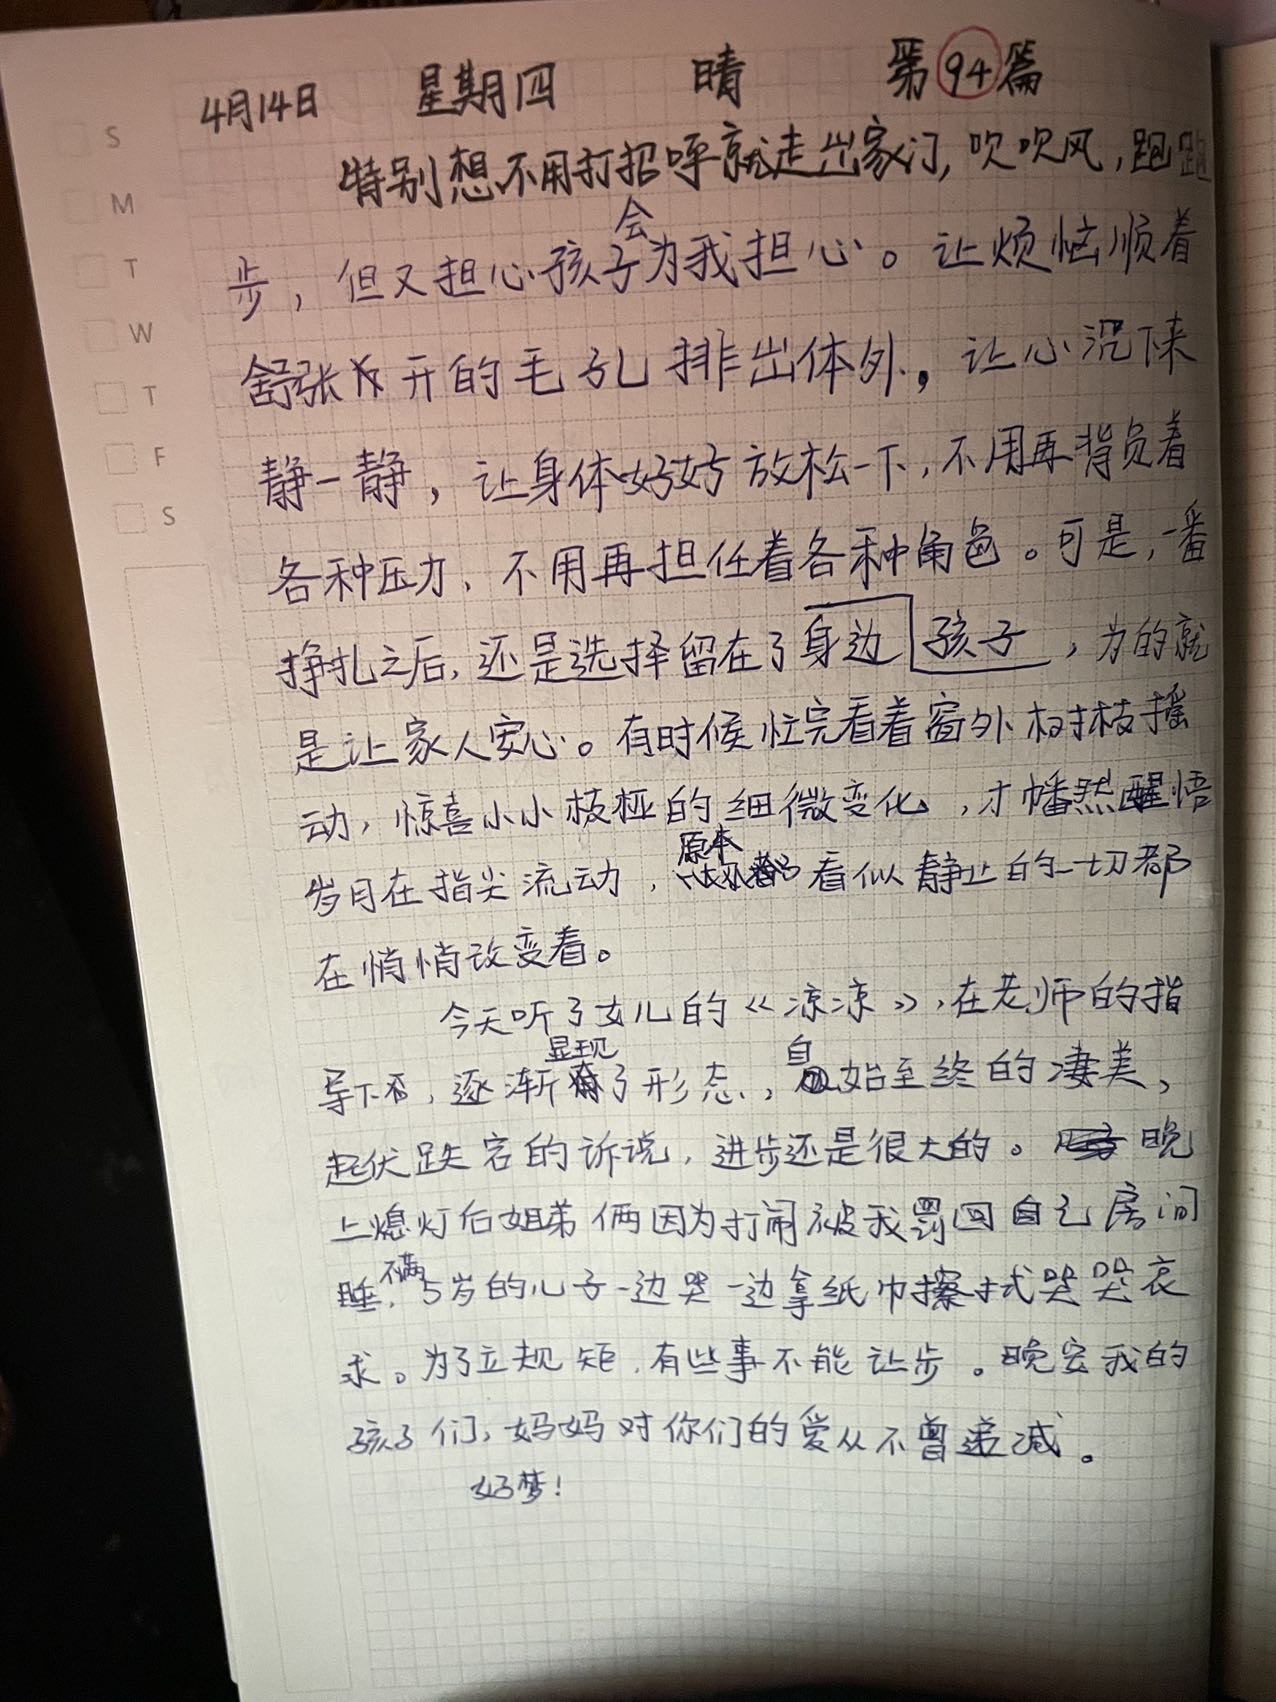 4月14日 星期四 晴 第94篇
S
M
T
W
T
F
S
特别想不用打招呼就走出家门,吹吹风,跑跑
步,但又担心孩子会为我担心。让烦恼顺着
舒张开的毛孔排出体外,让心沉下来
静一静,让身体好好放松一下,不用再背负着
各种压力,不用再担任着各种角色。可是,一番
挣扎之后,还是选择留在了身边孩子,为的就
是让家人安心。有时候忙完看着窗外树枝摇
动,惊喜小小枝桠的细微变化,才幡然醒悟
岁月在指尖流动,原本看似静止的一切都
在悄悄改变着。
今天听了女儿的《凉凉》,在老师的指
导下,逐渐显现了形态,自始至终的凄美,
起伏跌宕的诉说,进步还是很大的。晚
上熄灯后姐弟俩因为打闹被我罚回自己房间
睡,不满5岁的儿子一边哭一边拿纸巾擦拭哭哭哀
求。为了立规矩,有些事不能让步。晚安我的
孩子们,妈妈对你们的爱从不曾递减。
好梦!